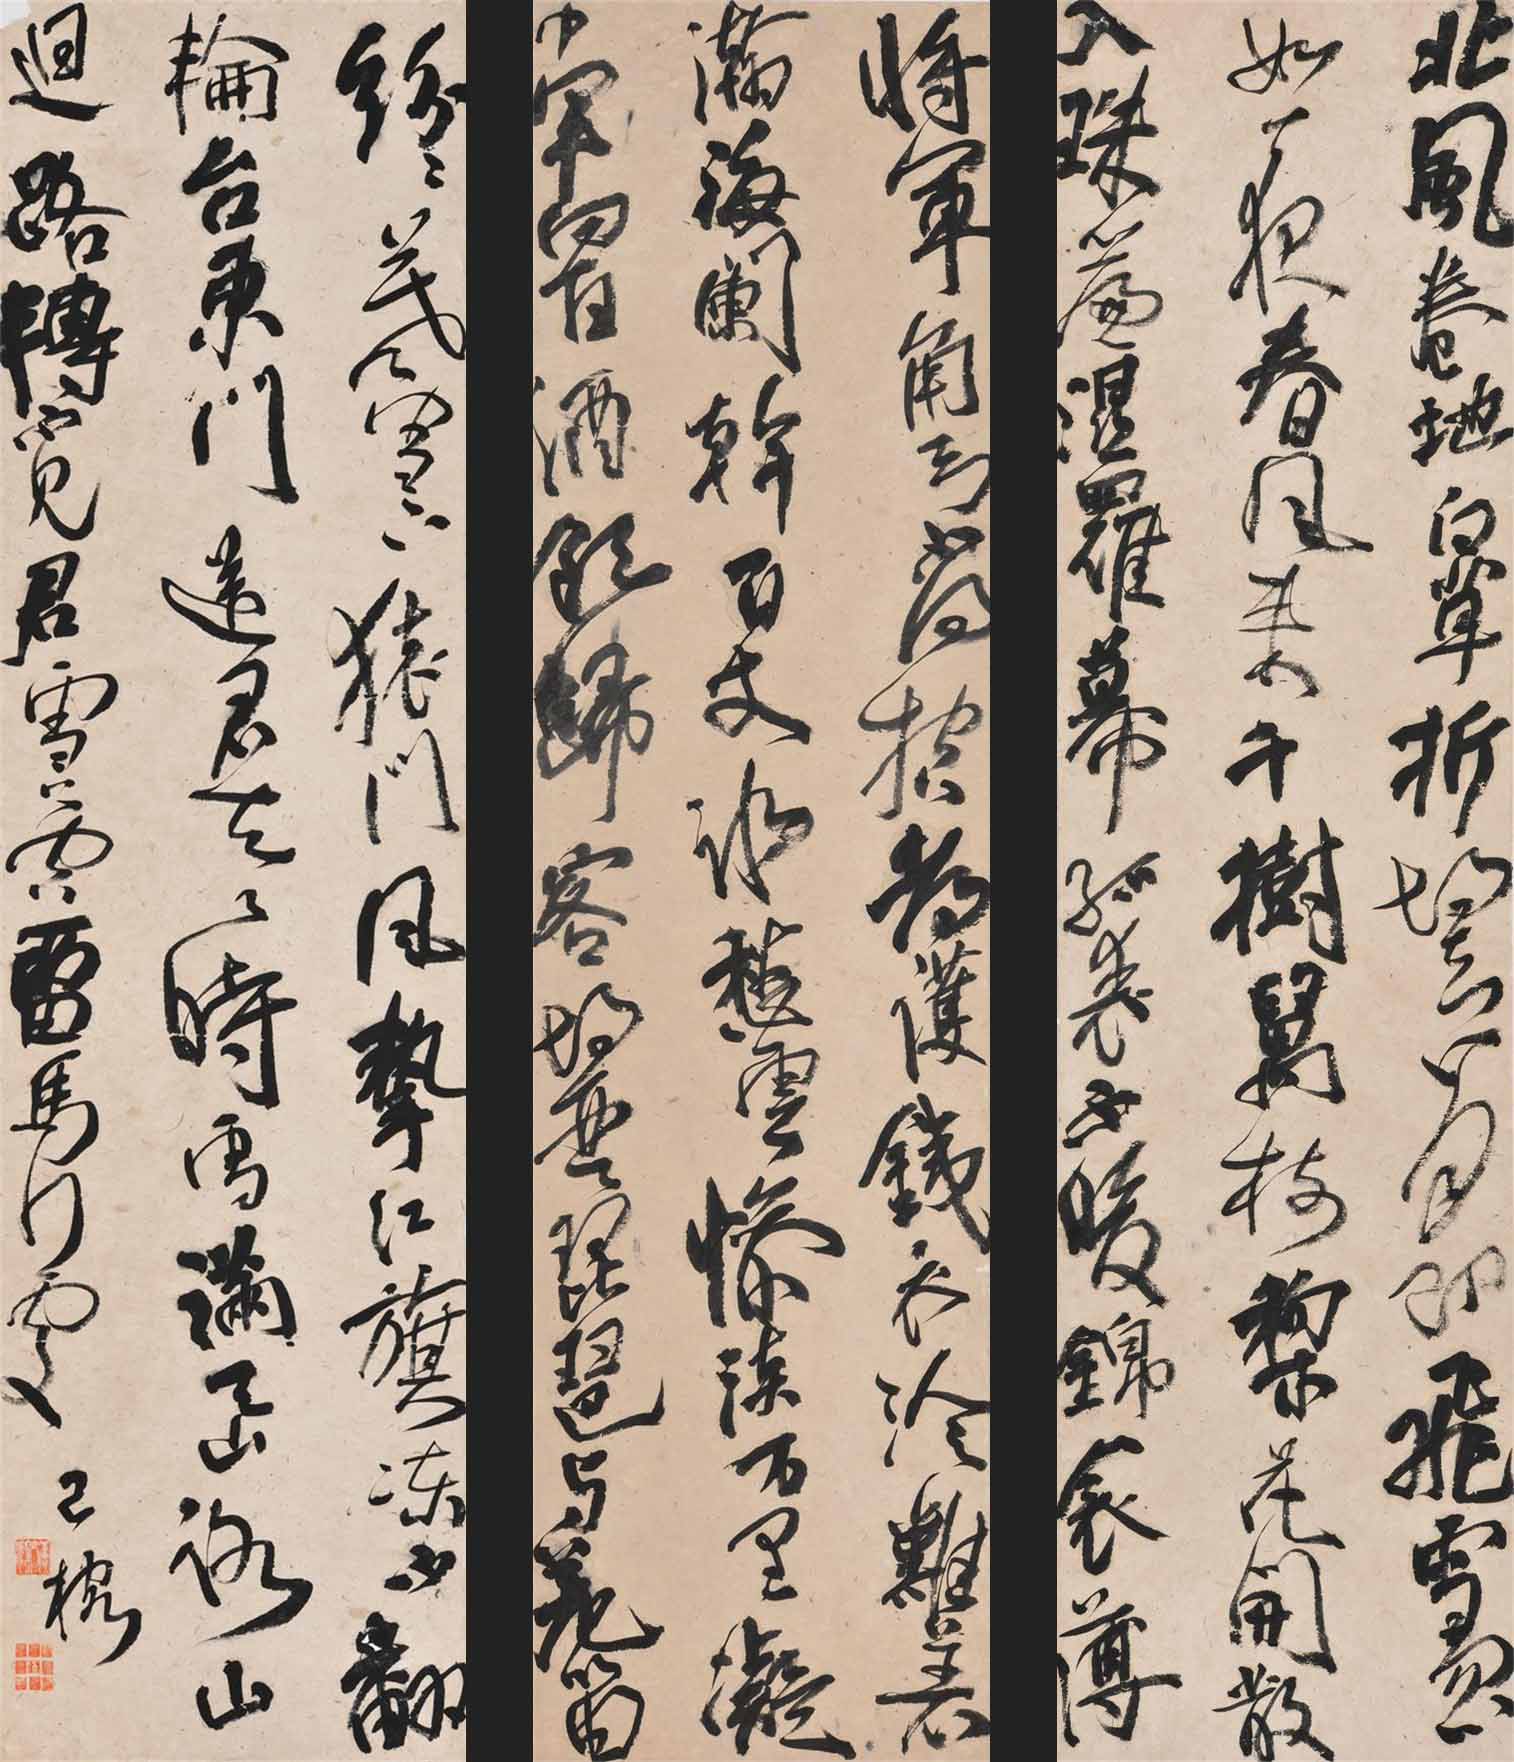 北風卷地白草折胡天八月即飛雪忽
如一夜春風來千樹萬枝梨花開散
入珠簾濕羅幕狐裘不暖錦衾薄
將軍角弓不得控都護鐵衣冷難著
瀚海闌幹百丈冰愁雲慘淡万里凝
中軍置酒飲歸客胡琴琵琶与羌笛
紛〻暮雪下轅門風掣紅旗凍不翻
輪台東門送君去〻時雪滿天山路山
迴路轉不見君雪上空留馬行處